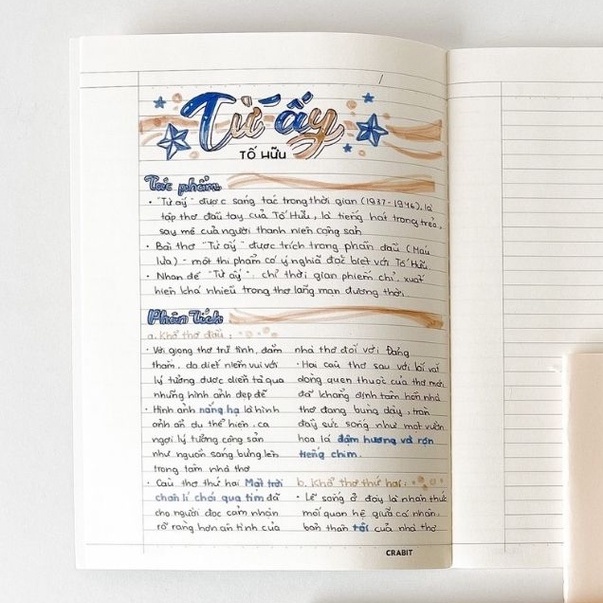 Từ ấy
TỐ HỮU
Tác phẩm
• "Từ ấy" được sáng tác trong thời gian (1937-1946), là
tập thơ đầu tay của Tố Hữu, là tiếng hát trong trẻo,
say mê của người thanh niên cộng sản
• Bài thơ "Từ ấy" được trích trong phần đầu (Máu
lửa) - một thi phẩm có ý nghĩa đặc biệt với Tố Hữu
• Nhan đề "Từ ấy": chỉ thời gian phiếm chỉ, xuất
hiện khá nhiều trong thơ lãng mạn đương thời.
Phân Tích
a. Khổ thơ đầu:
• Với giọng thơ trữ tình, đằm
thắm, da diết niềm vui với
lý tưởng được diễn tả qua
những hình ảnh đẹp đẽ
• Hình ảnh nắng hạ là hình
ảnh ẩn dụ thể hiện, ca
ngợi lý tưởng cộng sản
như nguồn sống bừng lên
trong tâm nhà thơ
• Câu thơ thứ hai Mặt trời
chân lí chói qua tim đã
cho người đọc cảm nhận
rõ ràng hơn ân tình của
nhà thơ đối với Đảng
• Hai câu thơ sau với bối cảnh
dòng quen thuộc của thơ mới
đã khẳng định tâm hồn nhà
thơ đang bừng dậy, tràn
đầy sức sống như một vườn
hoa lá đậm hương và rộn
tiếng chim.
b. Khổ thơ thứ hai:
• Lẽ sống ở đây là nhận thức
mối quan hệ giữa cá nhân,
bản thân tôi của nhà thơ
CRABIT